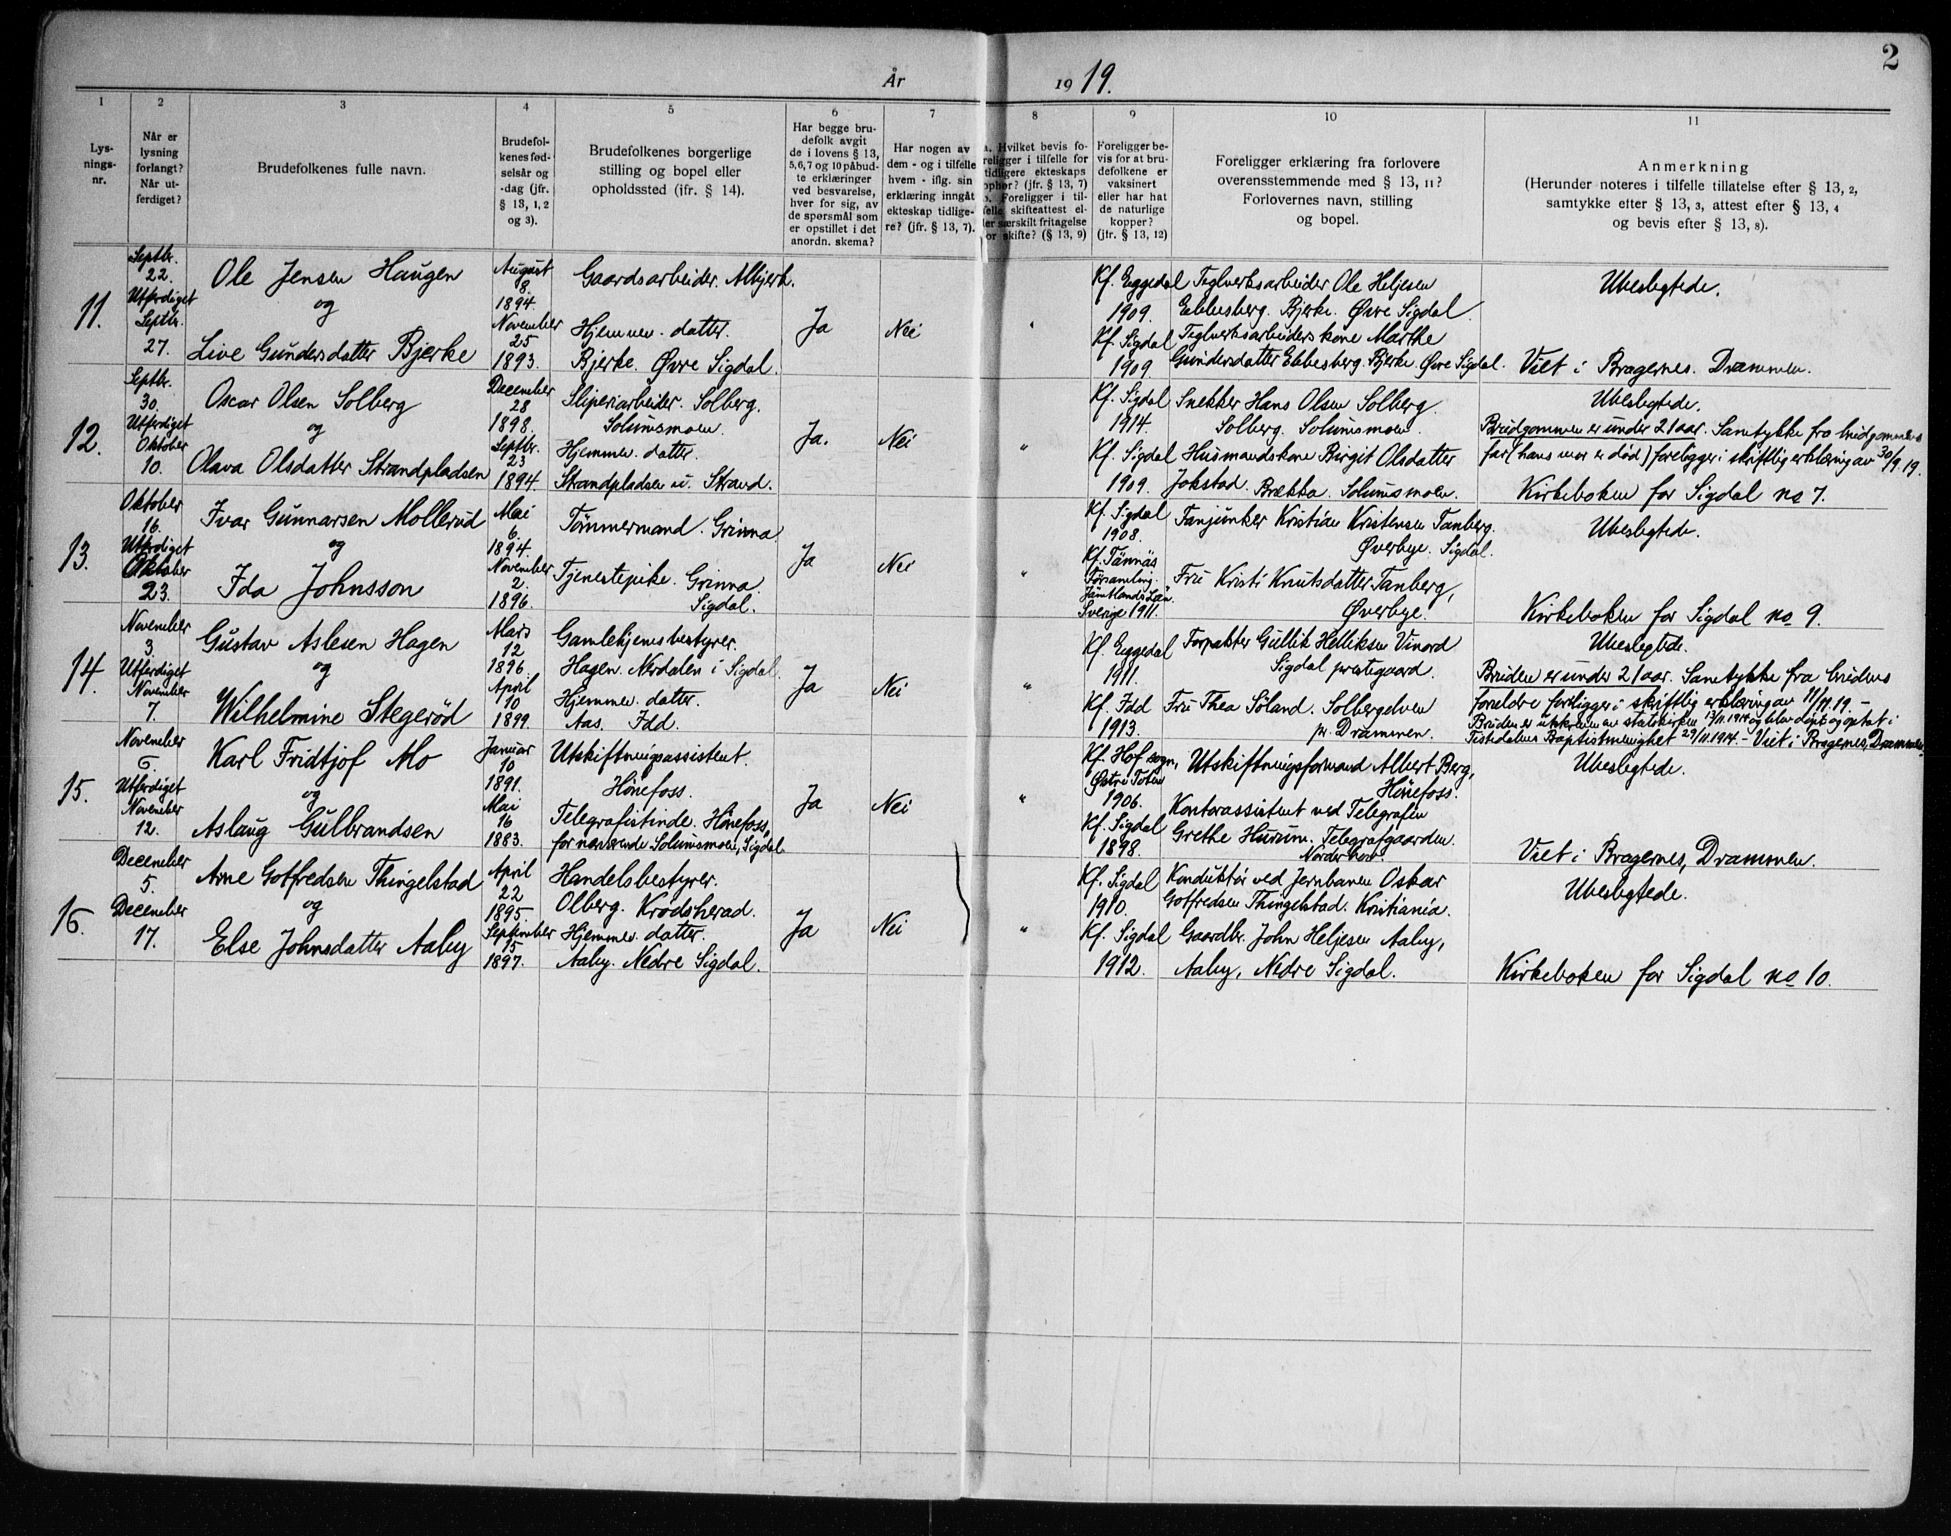 2
År 1919.
1 2 3 4 5 6 7 8 9 10 11
Lys-
nings-
nr.
Når er
lysning
forlangt?
Når ut-
ferdiget?
Brudefolkenes fulle navn.
Brudefol-
kenes fød-
selsår og
-dag (jfr.
§ 13, 1, 2
og 3).
Brudefolkenes borgerlige
stilling og bopel eller
opholdssted (jfr. § 14).
Har begge bru-
defolk avgit
de i lovens § 13,
5,6,7 og 10 påbud-
te erklæringer
ved besvarelse,
hver for sig, av
de spørsmål som
er opstillet i det
anordn. skema?
Har nogen av
dem - og i tilfelle
hvem - iflg. sin
erklæring inngåt
ekteskap tidlige-
re? (jfr. § 13, 7).
a. Hvilket bevis fo-
religger i tilfelle for
tidligere ekteskaps
ophør? (jfr. § 13, 7)
b. Foreligger i til-
felle skifteattest el-
ler særskilt fritagelse
for skifte? (§ 13, 9)
Foreligger be-
vis for at bru-
defolkene er
vaksinert
eller har hat
de naturlige
kopper?
(jfr. § 13, 12)
Foreligger erklæring fra forlovere
overensstemmende med § 13, 11?
Forlovernes navn, stilling
og bopel.
Anmerkning
(Herunder noteres i tilfelle tillatelse efter § 13, 2,
samtykke efter § 13, 3, attest efter § 13, 4
og bevis efter § 13, 8).
11.
Septbr.
22.
Utferdiget
Septbr.
27.
Ole Jensen Haugen
og
Live Gundersdatter Bjerke
August
8.
1894.
November
25
1893.
Gaardsarbeider. Albjerk.
Hjemmev. datter.
Bjerke. Øvre Sigdal.
Ja
Nei
"
Kf. Eggedal
1909.
Kf. Sigdal
1909.
Teglverksarbeider Ole Heljesen
Ebbesberg. Bjerke. Øvre Sigdal.
Teglverksarbeiders kone Marthe
Gundersdatter Ebbesberg. Bjerke. Øvre Sigdal.
Ubeslegtede.
Viet i Bragernes. Drammen.
12.
Septbr.
30.
Utferdiget
Oktober
10.
Oscar Olsen Solberg
og
Olava Olsdatter Strandpladsen
December
28
1898.
Septbr.
23
1894.
Sliperiarbeider. Solberg.
Solumsmoen.
Hjemmev. datter.
Strandpladsen u. Strand.
Ja.
Nei
"
Kf. Sigdal
1914.
Kf. Sigdal
1909.
Snekker Hans Olsen Solberg.
Solberg. Solumsmoen.
Husmandskone Birgit Olsdatter
Jokstad. Brækka. Solumsmoen.
Ubeslegtede.
Brudgommen er under 21 aar. Samtykke fra brudgommens
far (hans mor er død) foreligger i skriftlig erklæring av 30/9 19.
Kirkeboken for Sigdal no 7.
13.
Oktober
16.
Utferdiget
Oktober
23.
Ivar Gunnarsen Mollerud
og
Ida Johnsson
Mai
6.
1894.
November
2.
1896.
Tømmermand. Grinna
Tjenestepike. Grinna.
Sigdal.
Ja
Nei
"
Kf. Sigdal
1908.
Kf. Tännäs
Församling.
Jämtlands Län.
Sverige 1911.
Fanjunker Kristian Kristensen Tanberg.
Øverbye. Sigdal.
Fru Kristi Knutsdatter Tanberg,
Øverbye.
Ubeslegtede.
Kirkeboken for Sigdal no 9.
14.
November
3.
Utferdiget
November
7.
Gustav Aslesen Hagen
og
Wilhelmine Stegerød
Mars
12
1896.
April
10
1899.
Gamlehjemsbestyrer.
Hagen. Nerdalen i Sigdal.
Hjemmev. datter.
Aas. Idd.
Ja
Nei
"
Kf. Eggedal
1911.
Kf. Idd
1913.
Forpakter Gullik Helliksen Vinord
Sigdal prestegaard.
Fru Thea Söland. Solbergelven
pr. Drammen.
Ubeslegtede.
Bruden er under 21 aar. Samtykke fra brudens
foreldre foreligger i skriftlig erklæring av 11/11.19. –
Bruden er utskreven av statskirken 13/11.1914 og blev døpt og optat i
Tistedalens Baptistmenighet 29/11 1914. – Viet i Bragernes, Drammen.
15.
November
6.
Utferdiget
November
12.
Karl Fridtjof Mo
og
Aslaug Gulbrandsen
Januar
10
1891.
Mai
16
1883.
Utskiftningsassistent.
Hønefoss.
Telegrafistinde. Hønefoss,
for nærværende Solumsmoen, Sigdal.
Ja
Nei
"
Kf. Hof sogn,
Østre Toten
1906.
Kf. Sigdal
1898.
Utskiftningsformand Albert Berg,
Hønefoss.
Kontorassistent ved Telegrafen
Grethe Hurum. Telegrafgaarden.
Norderhov.
Ubeslegtede.
Viet i Bragernes, Drammen.
16.
December
5.
December
17.
Arne Gotfredsen Thingelstad
og
Else Johnsdatter Aaby
April
22
1895.
September
15
1897.
Handelsbestyrer.
Olberg. Krødsherad.
Hjemmev. datter.
Aaby. Nedre Sigdal.
Ja
Nei
"
Kf. Sigdal
1910.
Kf. Sigdal
1912.
Konduktør ved Jernbanen Oskar
Gotfredsen Thingelstad. Kristiania.
Gaardbr. John Heljesen Aaby,
Aaby, Nedre Sigdal.
Ubeslegtede.
Kirkeboken for Sigdal no 10.